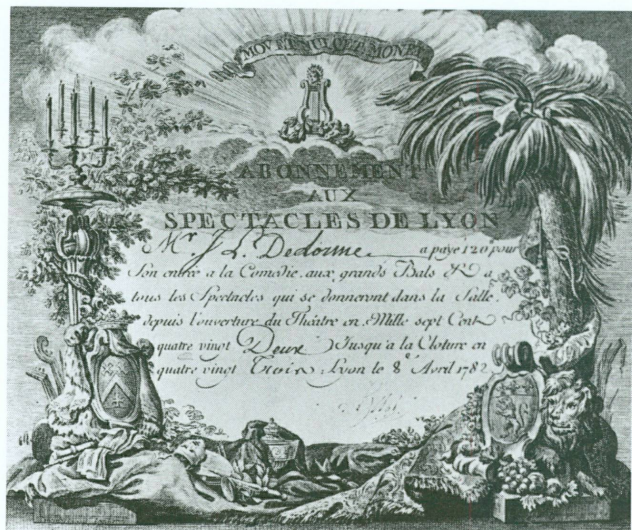 MOVET MULCET MONET
ABONNEMENT
AUX
SPECTACLES DE LYON
Mr. J. L. Dedorme a payé 120 pour
Son entrée a la Comédie, aux grands Bals & a
tous les Spectacles qui se donneront dans la Salle
depuis l'ouverture du Théâtre en Mille sept Cent
quatre vingt Deux Jusqu'a la Cloture en
quatre vingt Trois Lyon le 8 Avril 1782